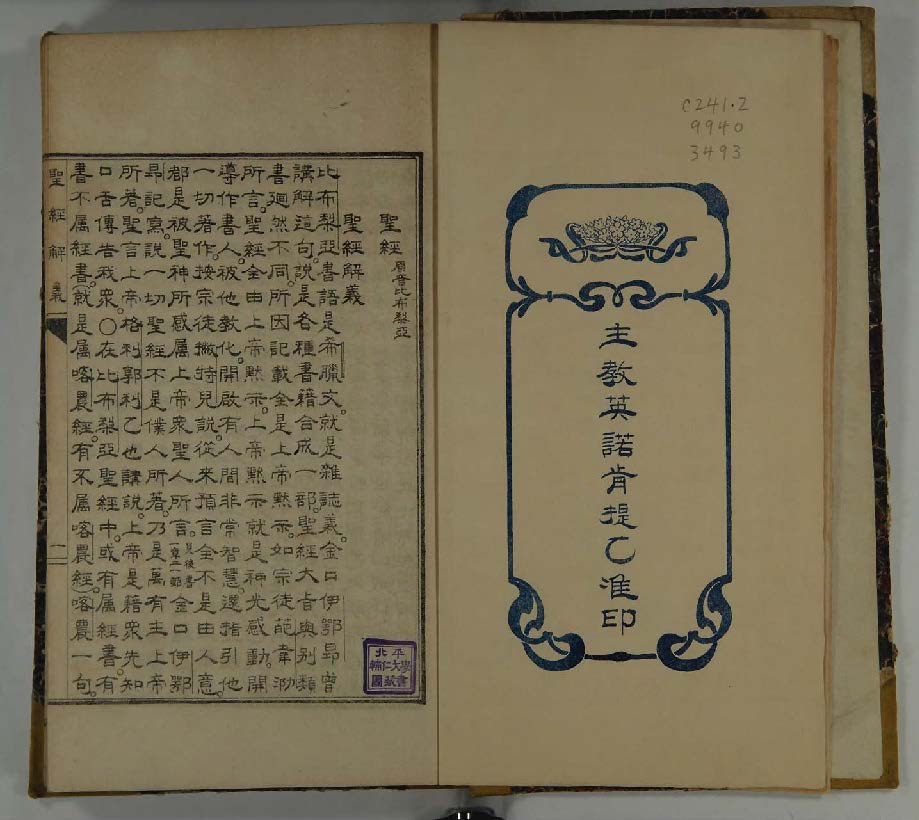 C241.2
9940
3493
主教英諾肯提乙准印
聖經原音比布梨亞
聖經解義
比布梨亞書語是希臘文就是雜誌義金口伊鄂昻曾
講解這句說是各種書籍合成一部聖經大旨與別類
書迥然不同所因記載全是上帝默示如宗徒葩韋泐
所言聖經全由上帝默示上帝默示就是神光感動開
導作書人被他敎化開啟有人間非常智慧還指引他
一切著作按宗徒撇特兒說從來預言全不是由人意
都是被聖神所感屬上帝衆聖人所言見後書一章二一節金口伊鄂
昻記寫說一切聖經不是僕人所著乃是萬有主上帝
所著聖言上帝格利郭利乙也講說上帝是藉衆先知
口舌傳告我衆〇在比布梨亞聖經中或有屬經書有
書不属經書就是属喀農經有不属喀農經喀農一句
聖經解義
一
北平輔仁大學圖書藏